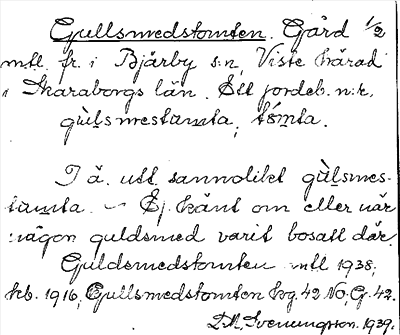 Gullsmedstomten. Gård 1/2
mtl. fr. i Bjärby s:n, Viste härad
i Skaraborgs län. Ett jordeb. n:r.
gùl̥smestamta, tómta.
I ä. utt. sannolikt gùl̥smes-
tamta. — Ej känt om eller när
någon guldsmed varit bosatt där.
Guldsmedstomten mtl 1938,
kb. 1916, Gullsmedstomten kg. 42 NO. G. 42.
D.A. Svenungsson. 1939.